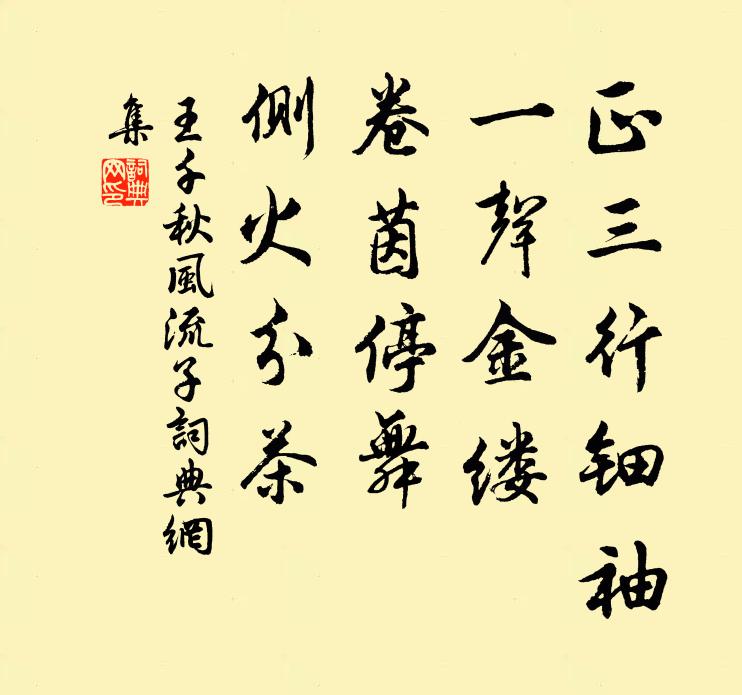 正三行钿袖
一聲金缕
卷茵停舞
側火分茶
王千秋風流子詞典網
集
詞典
网印